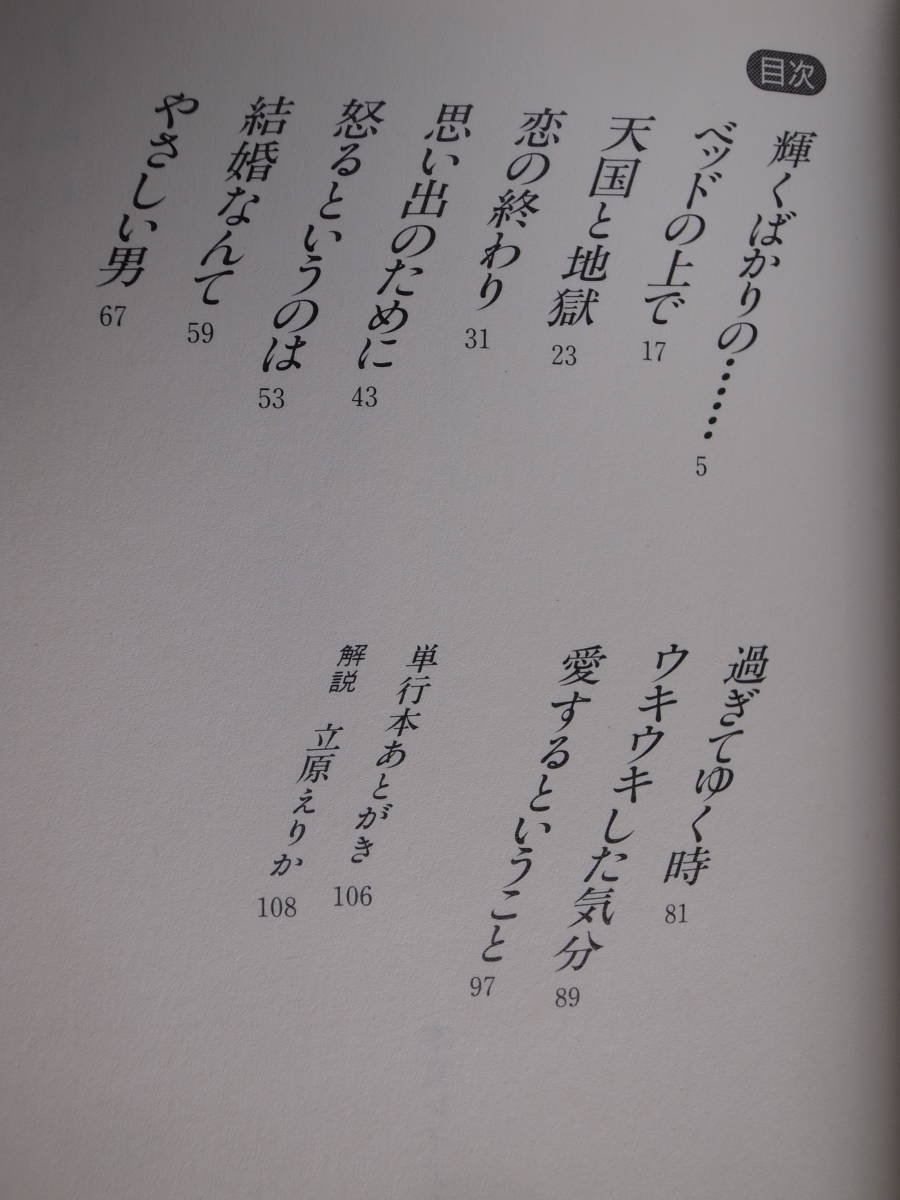 目次
輝くばかりの…… 5
ベッドの上で 17
天国と地獄 23
恋の終わり 31
思い出のために 43
怒るというのは 53
結婚なんて 59
やさしい男 67
過ぎてゆく時 81
ウキウキした気分 89
愛するということ 97
単行本あとがき 106
解説 立原えりか 108